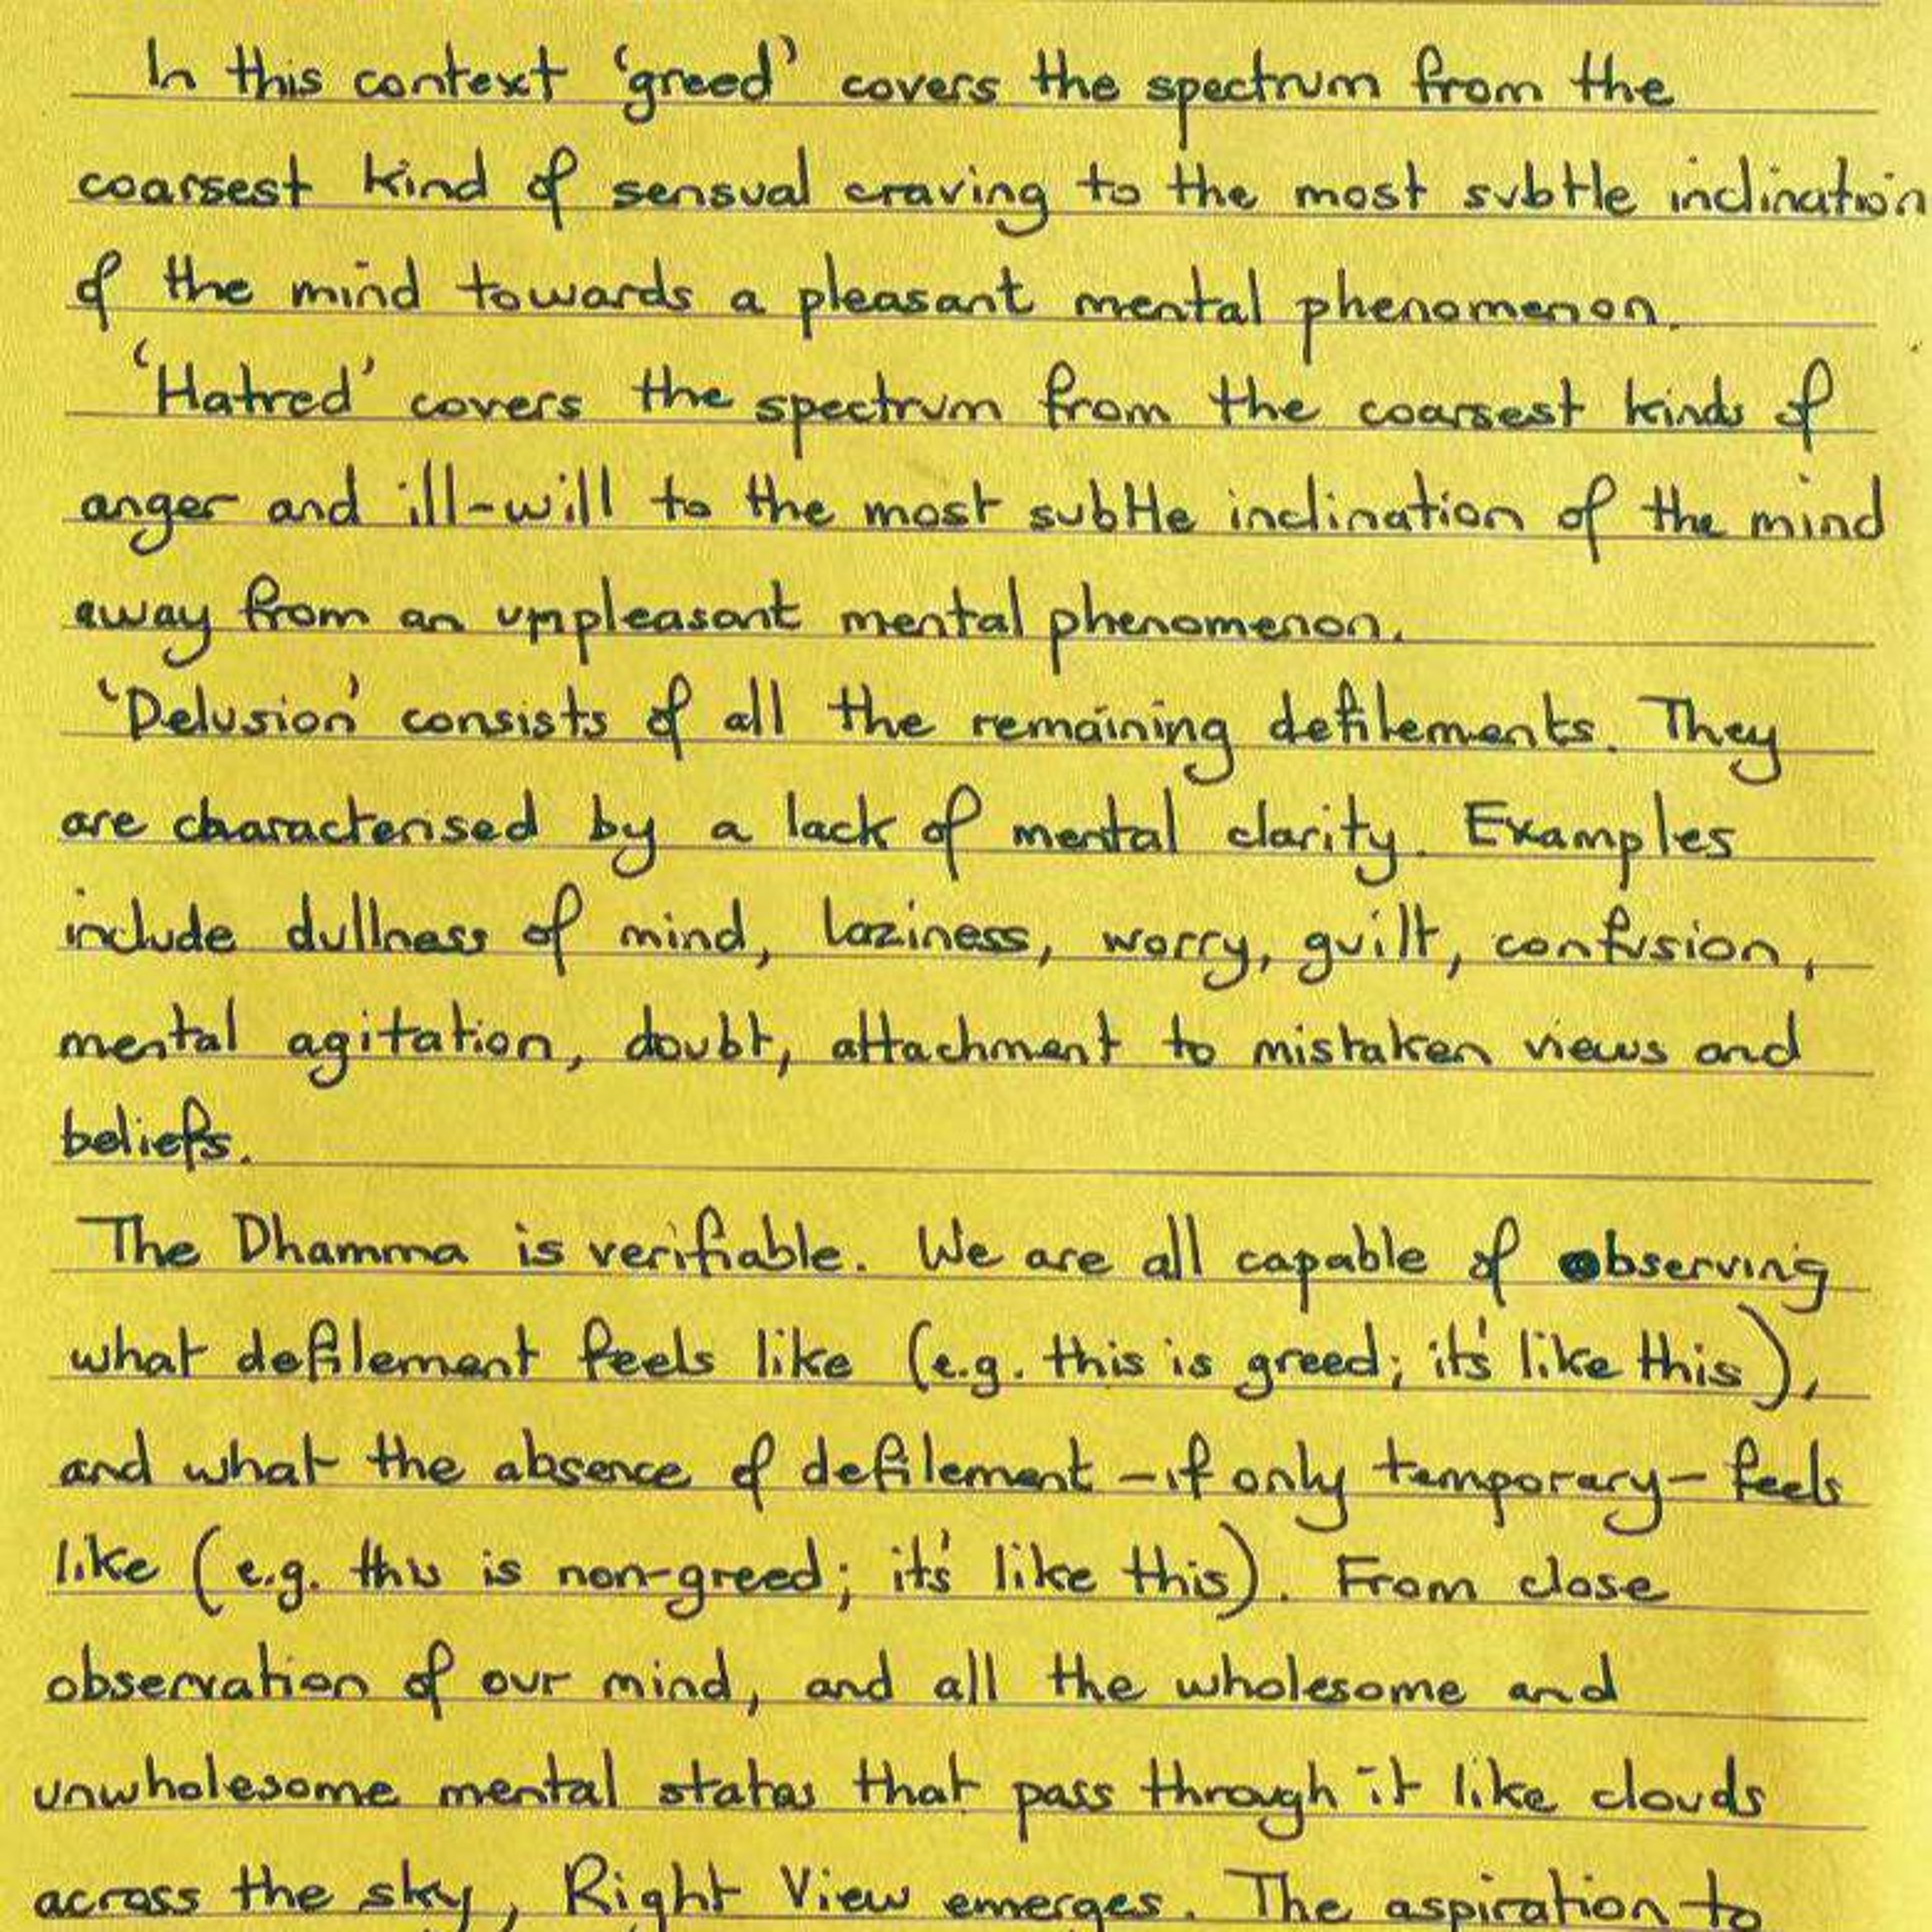 In this context ‘greed’ covers the spectrum from the
coarsest kind of sensual craving to the most subtle inclination
of the mind towards a pleasant mental phenomenon.
‘Hatred’ covers the spectrum from the coarsest kinds of
anger and ill-will to the most subtle inclination of the mind
away from an unpleasant mental phenomenon.
‘Delusion’ consists of all the remaining defilements. They
are characterised by a lack of mental clarity. Examples
include dullness of mind, laziness, worry, guilt, confusion,
mental agitation, doubt, attachment to mistaken views and
beliefs.
The Dhamma is verifiable. We are all capable of observing
what defilement feels like (e.g. this is greed; it's like this),
and what the absence of defilement – if only temporary – feels
like (e.g. this is non-greed; it's like this). From close
observation of our mind, and all the wholesome and
unwholesome mental states that pass through it like clouds
across the sky, Right View emerges. The aspiration to